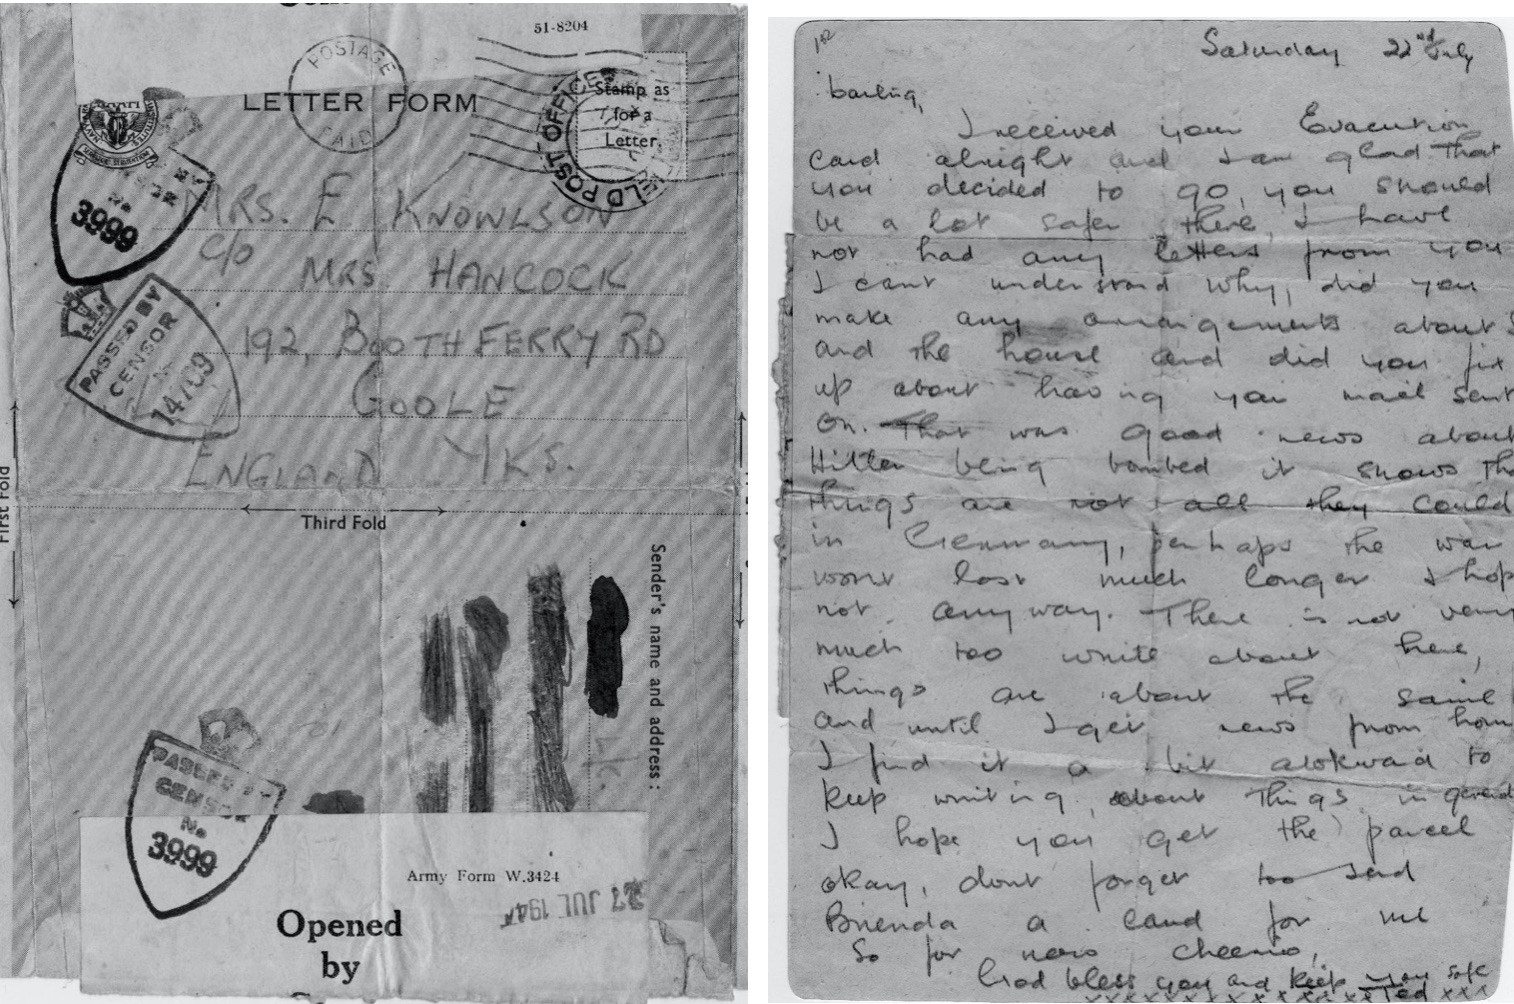 51-8204
POSTAGE
PAID
LETTER FORM
Stamp as
for a
Letter.
FIELD POST OFFICE
MRS. E KNOWLSON
c/o
MRS HANCOCK
192, BOOTHFERRY RD
GOOLE
ENGLAND YKS.
No.
3999
PASSED BY
CENSOR
No
14709
First Fold
Third Fold
Sender's name and address:
PASSED BY
CENSOR
No.
3999
Army Form W.3424
27 JUL 194
Opened
by
Saturday 22nd July
Darling,
I received your Evacution
card alright and I am glad that
you decided to go, you should
be a lot safer there, I have
not had any letters from you
I cant understand why, did you
make any arrangements about
and the house and did you fix
up about having your mail sent
on. That was good news about
Hitler being bombed it shows
things are not all they could
in Germany, perhaps the war
wont last much longer I hop
not anyway. There is not very
much too write about here,
things are about the same
and until I get news from hom
I find it a bit alokward to
keep writing about things in
I hope you get the parcel
okay, dont forget too send
Brienda a card for me
So for now cheerio,
God bless you and keep you safe
Ted xxx